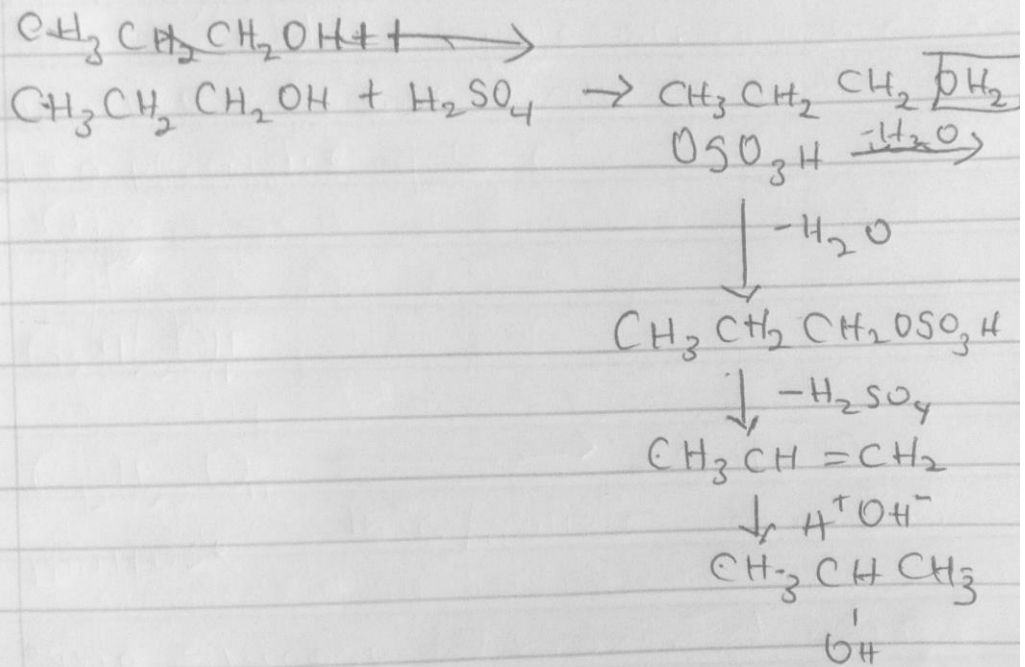 CH₃CH₂CH₂OH++→
CH₃CH₂CH₂OH + H₂SO₄ → CH₃CH₂CH₂OH₂
OSO₃H -H₂O→
↓ -H₂O
CH₃CH₂CH₂OSO₃H
↓ -H₂SO₄
CH₃CH=CH₂
↓ H⁺OH⁻
CH₃CHCH₃
OH